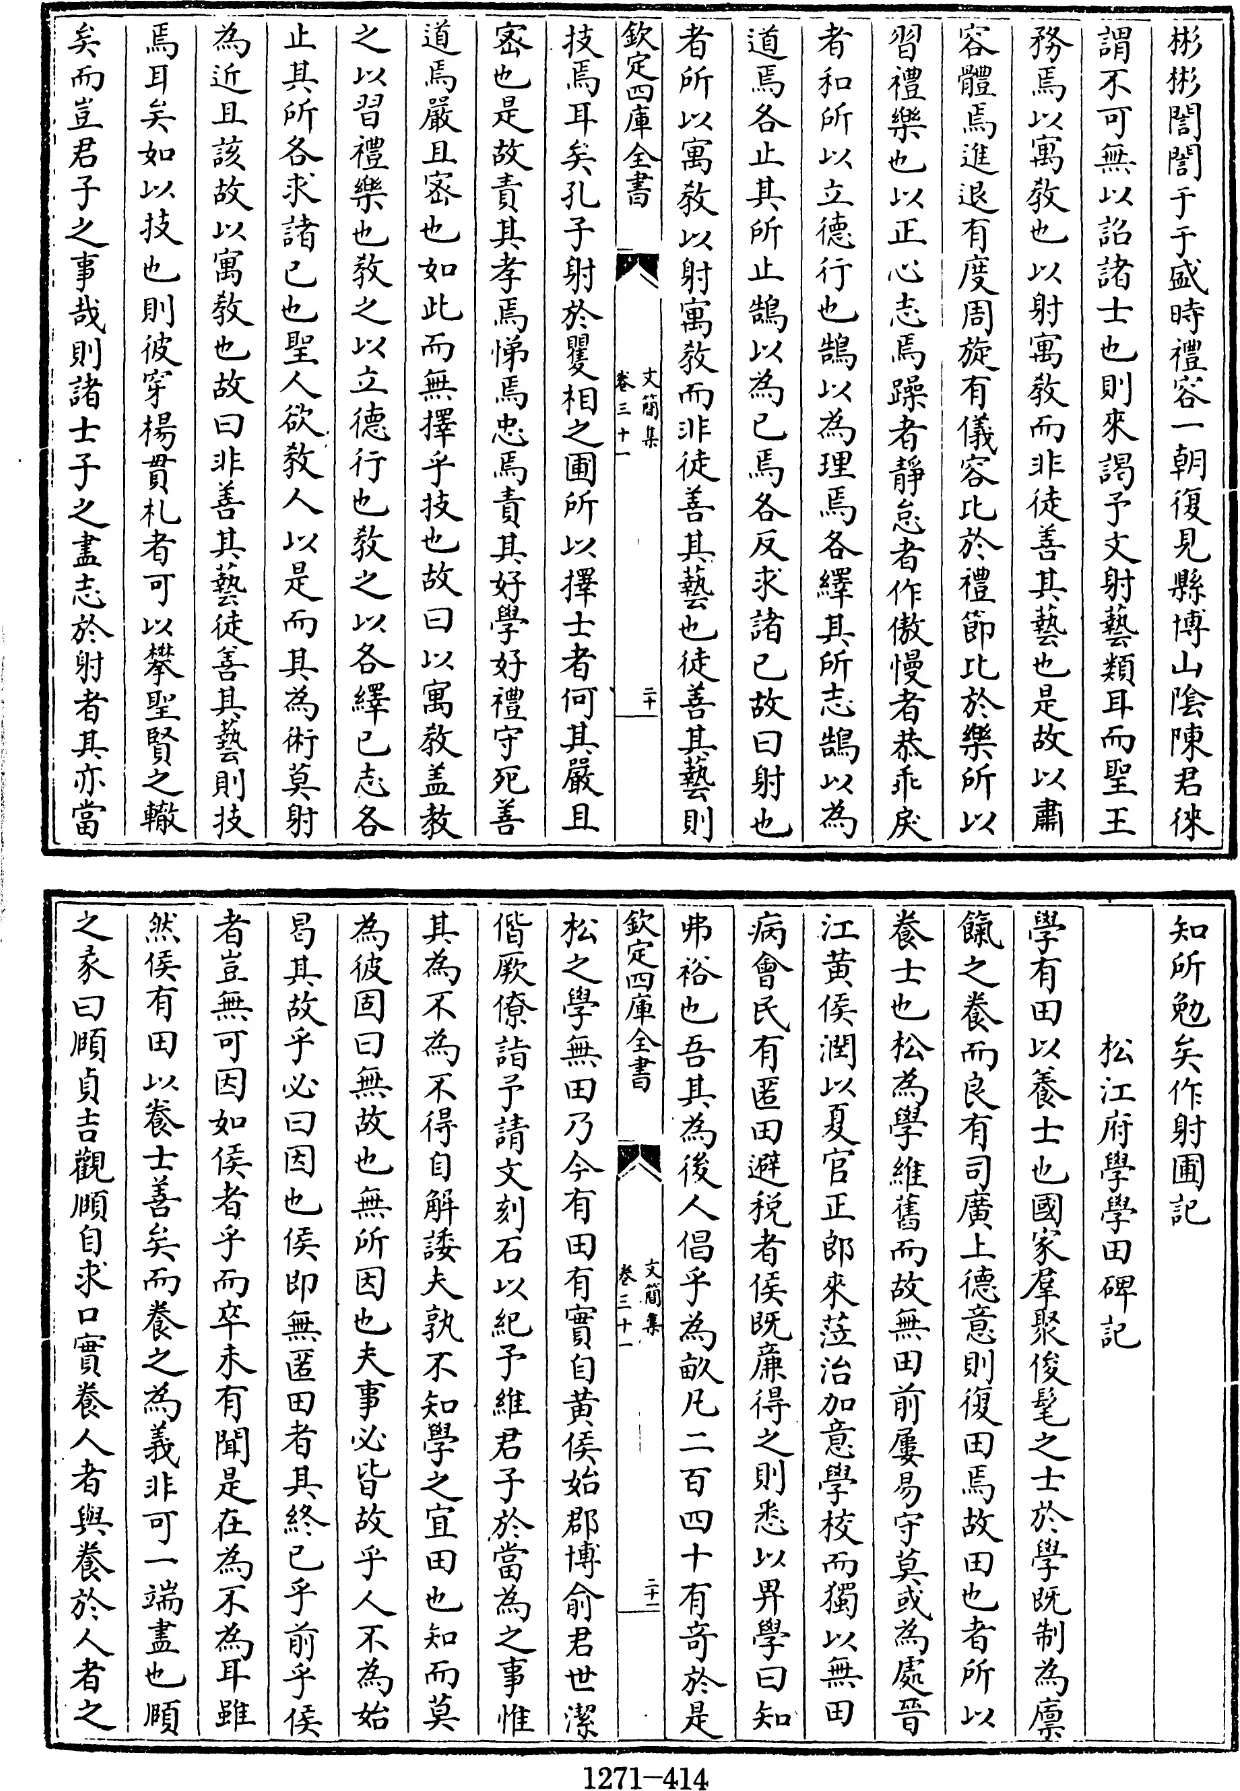 彬彬誾誾于于盛時禮容一朝復見縣博山陰陳君倈
謂不可無以詔諸士也則來謁予文射藝類耳而聖王
務焉以寓教也以射寓教而非徒善其藝也是故以肅
容體焉進退有度周旋有儀容比於禮節比於樂所以
習禮樂也以正心志焉躁者靜怠者作傲慢者恭乖戾
者和所以立德行也鵠以為理焉各繹其所志鵠以為
道焉各止其所止鵠以為已焉各反求諸已故曰射也
者所以寓教以射寓教而非徒善其藝也徒善其藝則
欽定四庫全書
文簡集
卷三十一
二十
技焉耳矣孔子射於矍相之圃所以擇士者何其嚴且
宻也是故責其孝焉悌焉忠焉責其好學好禮守死善
道焉嚴且宻也如此而無擇乎技也故曰以寓教盖教
之以習禮樂也教之以立德行也教之以各繹已志各
止其所各求諸已也聖人欲教人以是而其為術莫射
為近且該故以寓教也故曰非善其藝徒善其藝則技
焉耳矣如以技也則彼穿楊貫札者可以攀聖賢之轍
矣而豈君子之事哉則諸士子之盡志於射者其亦當
知所勉矣作射圃記
松江府學學田碑記
學有田以養士也國家羣聚俊髦之士於學既制為廪
餼之養而良有司廣上德意則復田焉故田也者所以
養士也松為學維舊而故無田前屢易守莫或為處晉
江黃侯潤以夏官正郎來蒞治加意學校而獨以無田
病會民有匿田避税者侯既亷得之則悉以畀學曰知
弗裕也吾其為後人倡乎為畝凡二百四十有奇於是
欽定四庫全書
文簡集
卷三十一
二十一
松之學無田乃今有田有實自黃侯始郡博俞君世潔
偕厥僚詣予請文刻石以紀予維君子於當為之事惟
其為不為不得自解諉夫孰不知學之宜田也知而莫
為彼固曰無故也無所因也夫事必皆故乎人不為始
曷其故乎必曰因也侯即無匿田者其終已乎前乎侯
者豈無可因如侯者乎而卒未有聞是在為不為耳雖
然侯有田以養士善矣而養之為義非可一端盡也頤
之彖曰頤貞吉觀頤自求口實養人者與養於人者之
1271-414